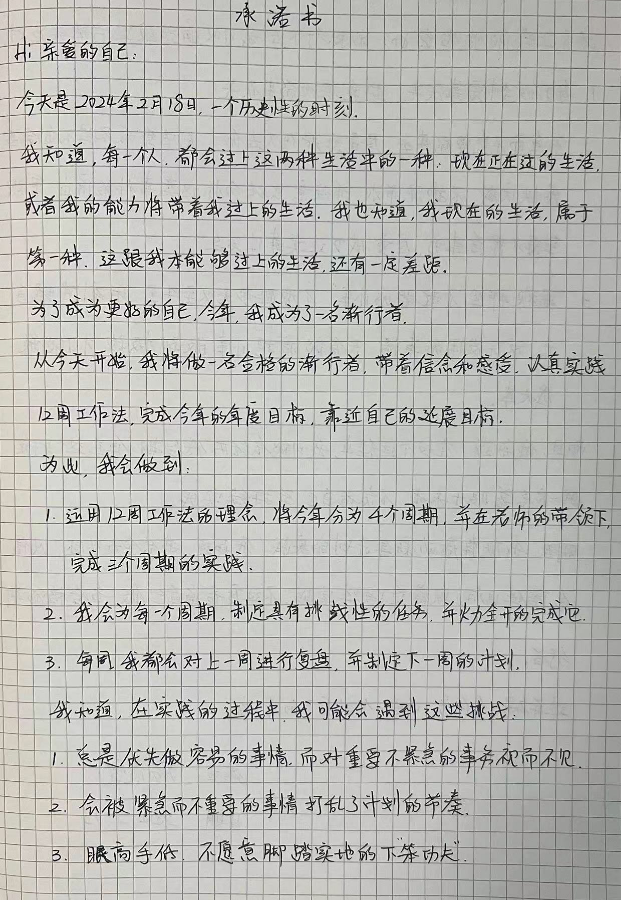 承诺书
Hi 亲爱的自己:
今天是2024年2月18日,一个历史性的时刻.
我知道,每一个人,都会过上这两种生活中的一种:现在正在过的生活,
或者我的能力将带着我过上的生活.我也知道,我现在的生活,属于
第一种.这跟我本能够过上的生活,还有一定差距.
为了成为更好的自己,今年,我成为了一名渐行者.
从今天开始,我将做一名合格的渐行者,带着信念和感受,认真实践
12周工作法,完成今年的年度目标,靠近自己的延展目标.
为此,我会做到:
1.运用12周工作法的理念,将今年分为4个周期,并在老师的带领下,
完成三个周期的实践.
2.我会为每一个周期,制定具有挑战性的任务,并火力全开的完成它.
3.每周,我都会对上一周进行复盘,并制定下一周的计划.
我知道,在实践的过程中,我可能会遇到这些挑战:
1.总是优先做容易的事情,而对重要不紧急的事务视而不见.
2.会被紧急而不重要的事情打乱了计划的节奏.
3.眼高手低,不愿意脚踏实地的下"笨功夫".